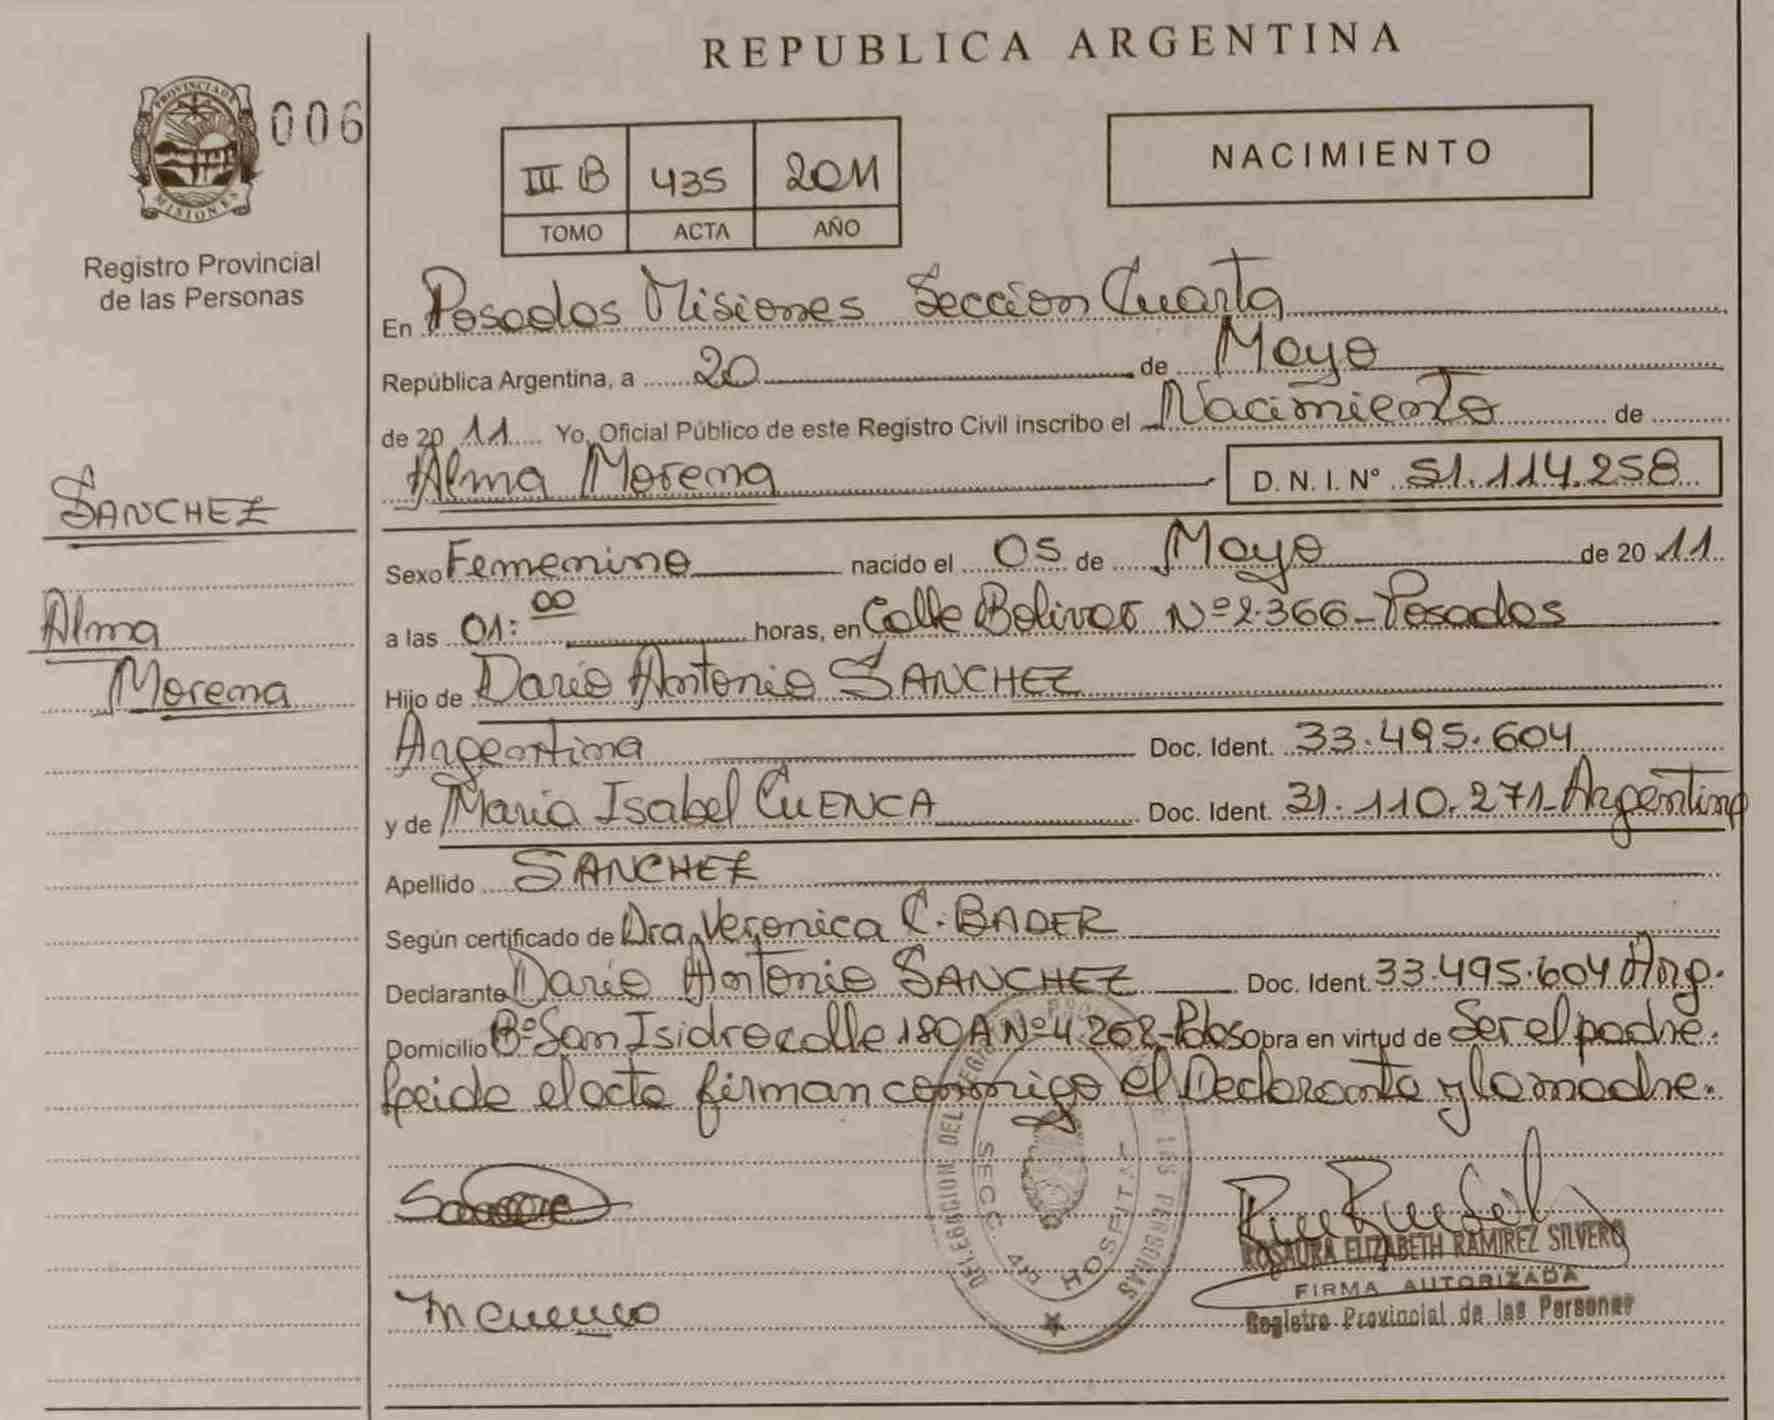 REPUBLICA ARGENTINA
PROVINCIA DE
MISIONES
006
Registro Provincial
de las Personas
III B 435 2011
TOMO ACTA AÑO
NACIMIENTO
En Posadas Misiones Sección Cuarta
República Argentina, a 20 de Mayo
de 20 11 Yo, Oficial Público de este Registro Civil inscribo el Nacimiento de
Alma Morena D. N. I. Nº 51.114.258
SANCHEZ
Alma
Morena
Sexo Femenino nacido el 05 de Mayo de 20 11
a las 01:00 horas, en Calle Bolivar Nº 2.366 - Posadas
Hijo de Dario Antonio SANCHEZ
Argentina Doc. Ident. 33.495.604
y de Maria Isabel CUENCA Doc. Ident. 31.110.271 - Argentina
Apellido SANCHEZ
Según certificado de Dra. Veronica C. BADER
Declarante Dario Antonio SANCHEZ Doc. Ident. 33.495.604 Arg.
Domicilio Bº San Isidro calle 180 A Nº 4.262 - Pdas Obra en virtud de Ser el padre.
Leida el acta firman conmigo el Declarante y la madre.
DELEGACION DEL LAS PERSONAS
SECC. 4ta HOSPITAL
M Cuenca
ROSAURA ELIZABETH RAMIREZ SILVERO
FIRMA AUTORIZADA
Registro Provincial de las Personas